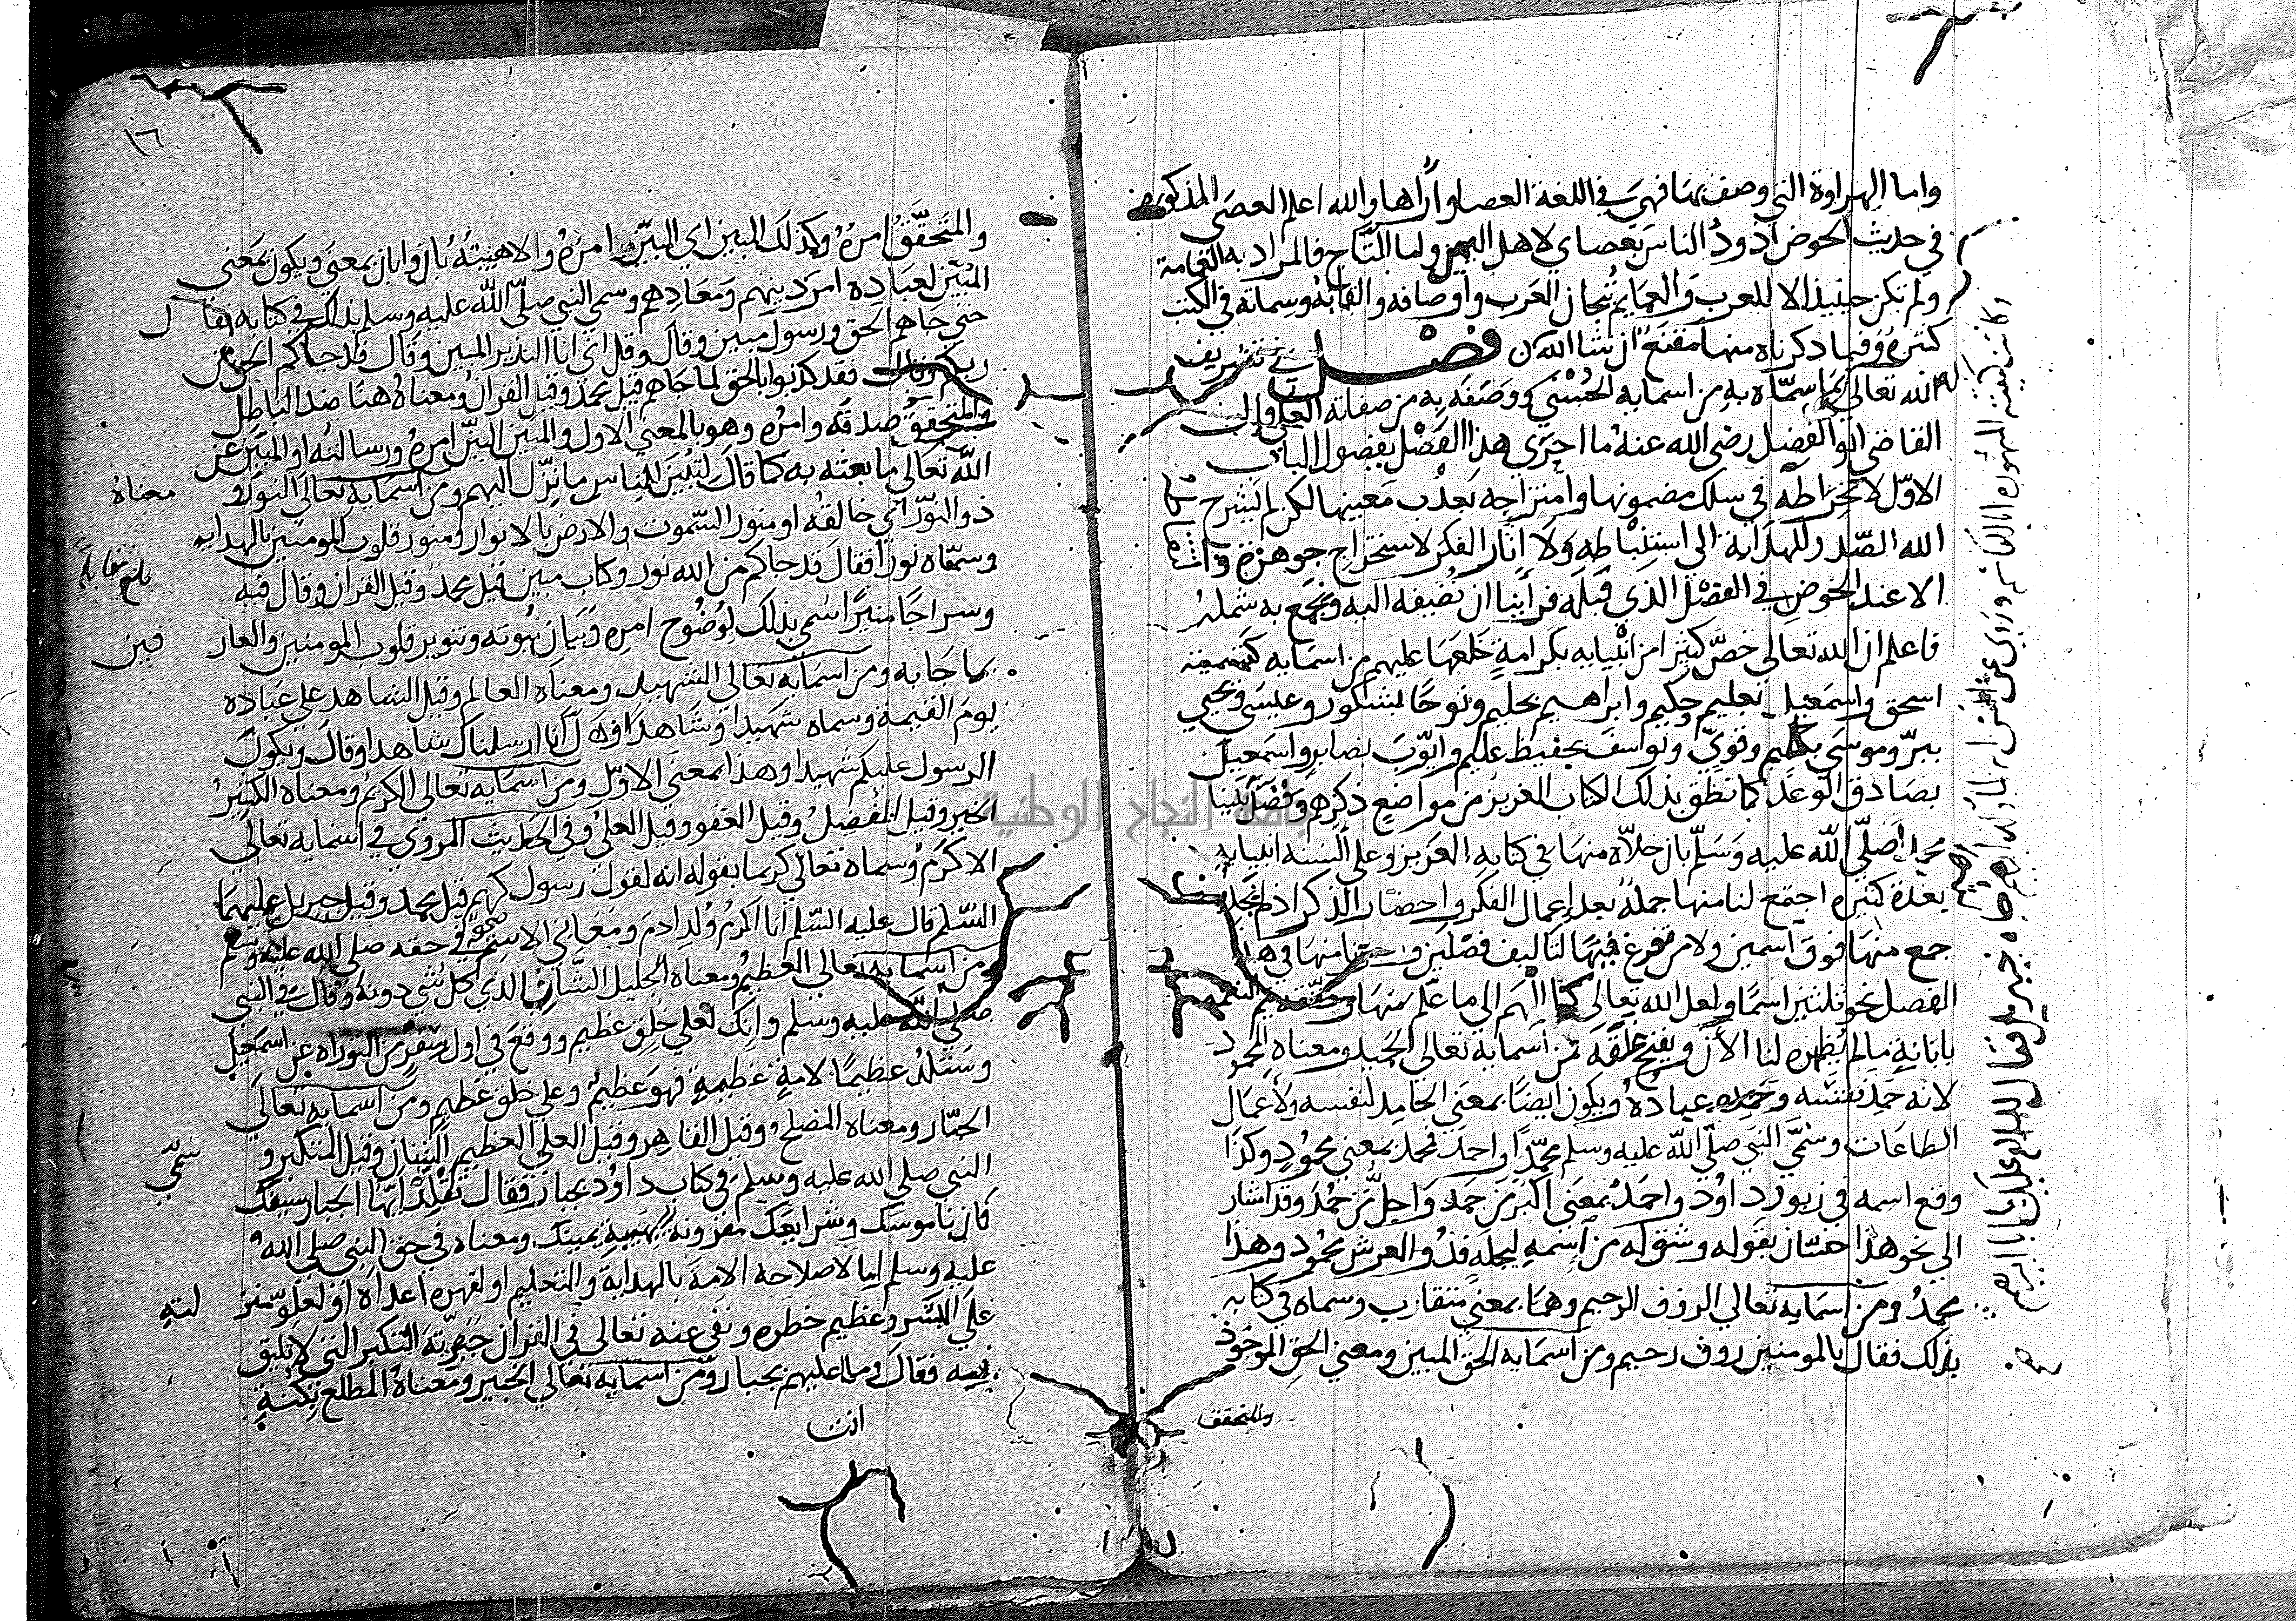 واما الهراوة التي وصف بها فهي في اللغة العصا واراها والله اعلم العصى المذكورة
في حديث الحوض اذود الناس بعصاي لاهل اليمن واما التاج فالمراد به العمامة
ولم تكن حينيذ الا للعرب والعمايم تيجان العرب واوصافه والقابه وسماته في الكتب
كثيرة وفيما ذكرناه منها مقنع ان شا الله فصل في تشريف
الله تعالى له بما سماه به من اسمايه الحسنى ووصفه به من صفاته العلى قال
القاضي ابو الفضل رضى الله عنه ما احرى هذا الفصل بفصول الباب
الاول لانخراطه في سلك مضمونها وامتزاجه بعذب معينها لكن لم يشرح
الله الصدر للهداية الى استنباطه ولا انار الفكر لاستخراج جوهره و
الا عند الخوض في الفصل الذي قبله فراينا ان نضيفه اليه ونجمع به شمله
فاعلم ان الله تعالى خص كثيرا من انبيايه بكرامة خلعها عليهم من اسمايه كتسمية
اسحق واسمعيل بعليم وحليم وابراهيم بحليم ونوحا بشكور وعيسى ويحيى
ببر وموسى بكريم وقوي ويوسف بحفيظ عليم وايوب بصابر واسمعيل
بصادق الوعد كما نطق بذلك الكتاب العزيز من مواضع ذكرهم وفضل نبينا
محمدا صلى الله عليه وسلم بان حلاه منها في كتابه العزيز وعلى السنة انبيايه
بعدة كثيرة اجتمع لنا منها جملة بعد اعمال الفكر واحضار الذكر اذ لم نجد
جمع منها فوق اسمين ولا من تفرغ فيها لتاليف فصلين و منها في هذا
الفصل نحو ثلثين اسما ولعل الله تعالى كما الهم الى ما علم منها وحققه يتم النعمة
بابانة مالم يظهره لنا الان ويفتح غلقه فمن اسمايه تعالى الحميد ومعناه المحمود
لانه حمد نفسه وحمده عباده ويكون ايضا بمعنى الحامد لنفسه ولاعمال
الطاعات وسمى النبي صلى الله عليه وسلم محمدا واحمد فمحمد بمعنى محمود وكذا
وقع اسمه في زبور داود واحمد بمعنى اكبر من حمد واجل من حمد وقد اشار
الى نحو هذا حسان بقوله وشق له من اسمه ليجله فذو العرش محمود وهذا
محمد ومن اسمايه تعالى الروف الرحيم وهما بمعنى متقارب وسماه في كتابه
بذلك فقال بالمومنين روف رحيم ومن اسمايه الحق المبين ومعنى الحق الموجود
والمتحقق
١٦
والمتحقق امره وكذلك المبين اي المبين امره والاهيته بان وابان بمعنى ويكون بمعنى
المبين لعباده امر دينهم ومعادهم وسمى النبي صلى الله عليه وسلم بذلك في كتابه فقال
حتى جاهم الحق ورسول مبين وقال وقل اني انا النذير المبين وقال قد جاكم الحق من
ربكم وقال فقد كذبوا بالحق لما جاهم قيل محمد وقيل القران ومعناه هنا ضد الباطل
والمتحقق صدقه وامره وهو بالمعنى الاول والمبين البين امره ورسالته او المبين عن
الله تعالى ما بعثه به كما قال لتبين للناس ما نزل اليهم ومن اسمايه تعالى النور و معناه
ذو النور اي خالقه او منور السموت والارض بالانوار ومنور قلوب المومنين بالهداية
وسماه نورا فقال قد جاكم من الله نور وكتاب مبين قيل محمد وقيل القران وقال فيه
وسراجا منيرا سمى بذلك لوضوح امره وبيان نبوته وتنوير قلوب المومنين والعار فين
بما جا به ومن اسمايه تعالى الشهيد ومعناه العالم وقيل الشاهد على عباده
يوم القيمة وسماه شهيدا وشاهدا فقال انا ارسلناك شاهدا وقال ويكون
الرسول عليكم شهيدا وهذا بمعنى الاول ومن اسمايه تعالى الكريم ومعناه الكثير
الخير وقيل المفضل وقيل العفو وقيل العلي وفي الحديث المروي في اسمايه تعالى
الاكرم وسماه تعالى كريما بقوله انه لقول رسول كريم قيل محمد وقيل جبريل عليهما
السلم قال عليه السلم انا اكرم ولد ادم ومعاني الاسم صحيحة في حقه صلى الله عليه وسلم
ومن اسمايه تعالى العظيم ومعناه الجليل الشان الذي كل شي دونه وقال في النبي
صلى الله عليه وسلم وانك لعلى خلق عظيم ووقع في اول سفر من التوراة عن اسمعيل
وستلد عظيما لامة عظيمة فهو عظيم وعلى خلق عظيم ومن اسمايه تعالى
الجبار ومعناه المصلح وقيل القاهر وقيل العلي العظيم الشان وقيل المتكبر و سمي
النبي صلى الله عليه وسلم في كتاب داود بجبار فقال تقلد ايها الجبار سيفك
فان ناموسك وشرايعك مقرونة بهيبة يمينك ومعناه في حق النبي صلى الله
عليه وسلم اما لاصلاحه الامة بالهداية والتعليم او لقهره اعداه او لعلو منز لته
على البشر وعظيم خطره ونفى عنه تعالى في القران جبرية التكبر التي لا تليق
به فقال وما عليهم بجبار ومن اسمايه تعالى الخبير ومعناه المطلع بكنه